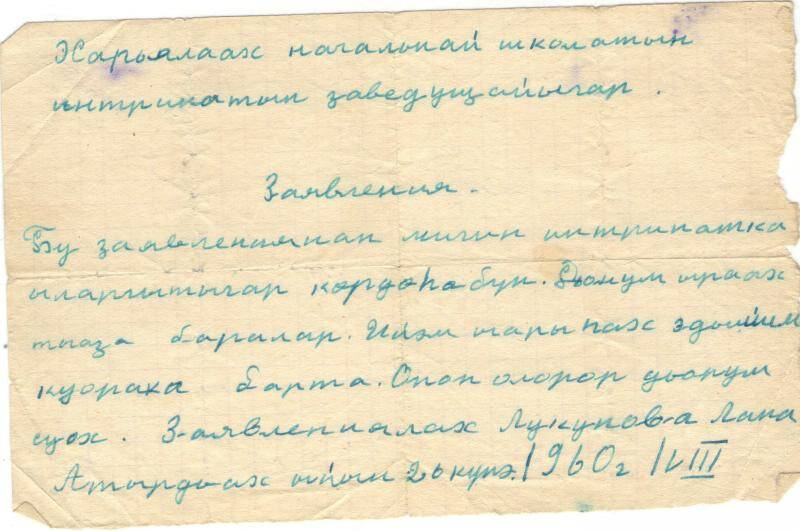 Харыялаах начальнай школатын
интринатын заведущайыгар.
Заявления.
Бу заявлениянан мигин интринатка
ыларгытыгар көрдөһөбүн. Дьонум ыраах
тыаҕа баралар. Ийэм ыарыһах эдьиийим
куоракка барта. Онон олорор дьонум
суох. Заявлениялаах Лукунова Лана
Атырдьах ыйын 26 күнэ. 1960 г VIII